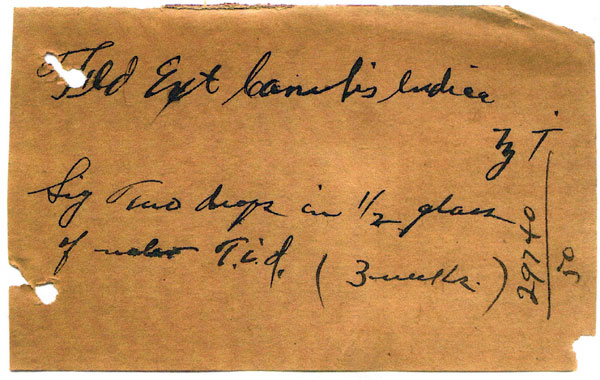 Fld Ext Canabis Indica
℥ i
Sig Two drops in 1/2 glass
of water T.i.d. (3 weeks.)
29740
50